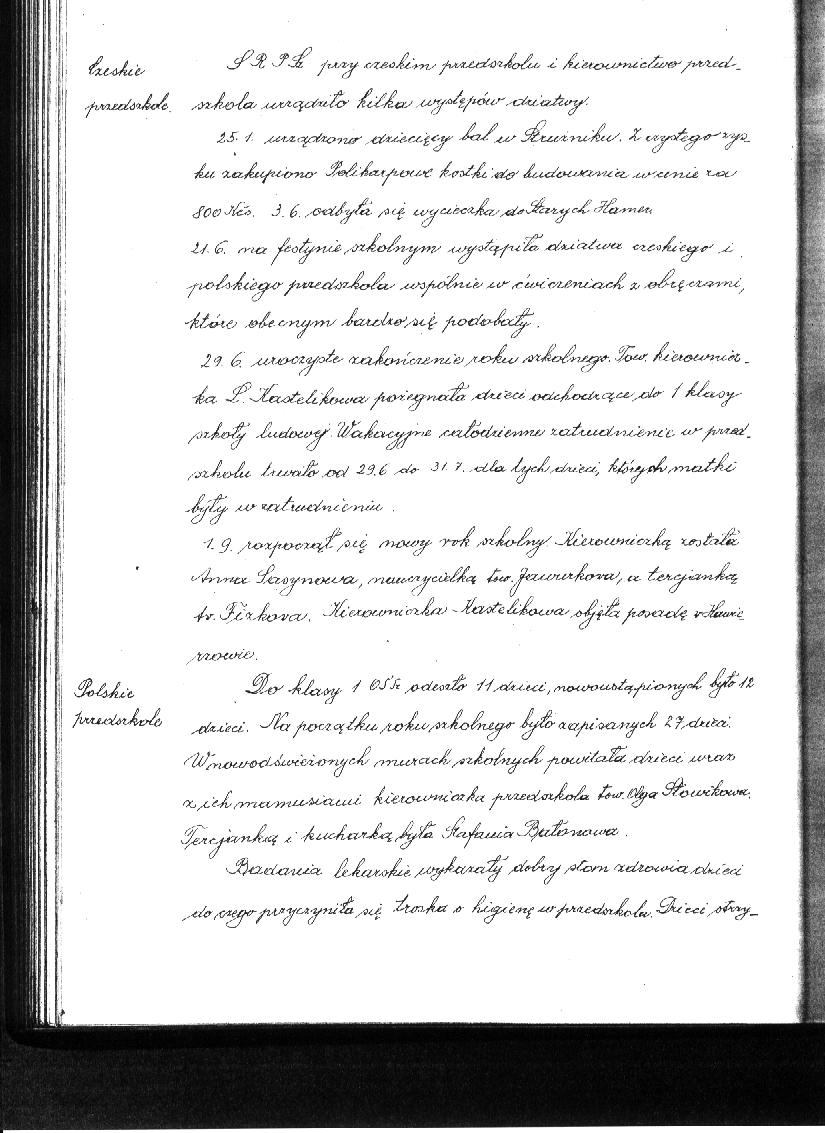 Czeskie
przedszkole.
S R P Sz przy czeskim przedszkolu i kierownictwo przed-
szkola urządziło kilka występów dziatwy.
25.1. urządzono dziecięcy bal w Strużniku. Z czystego zys-
ku zakupiono Polikarpowe kostki do budowania w cenie za
800 Kčs. 3.6. odbyła się wycieczka do Starych Hamer.
21.6. na festynie szkolnym wystąpiła dziatwa czeskiego i
polskiego przedszkola wspólnie w ćwiczeniach z obręczami,
które obecnym bardzo się podobały.
29.6. uroczyste zakończenie roku szkolnego. Tow. kierownicz-
ka L. Kastelikowa pożegnała dzieci odchodzące do 1 klasy
szkoły ludowej. Wakacyjne całodzienne zatrudnienie w przed-
szkolu trwało od 29.6 do 31.7. dla tych dzieci, których matki
były w zatrudnieniu.
1.9. rozpoczął się nowy rok szkolny. Kierowniczką została
Anna Sasynowa, nauczycielką tow. Jawurkova, a tercjanką
tv. Fizkova. Kierowniczka Kastelikowa objęła posadę v Hawie
rzowie.
Polskie
przedszkole
Do klasy 1 OSSz odeszło 11 dzieci, nowowstąpionych było 12
dzieci. Na początku roku szkolnego było zapisanych 27 dzieci.
W nowodświeżonych murach szkolnych powitała dzieci wraz
z ich mamusiami kierowniczka przedszkola tow. Olga Słowikowa.
Tercjanką i kucharką była Stefania Bałonowa.
Badania lekarskie wykazały dobry stan zdrowia dzieci
do czego przyczyniła się troska o higienę w przedszkola. Dzieci otrzy-